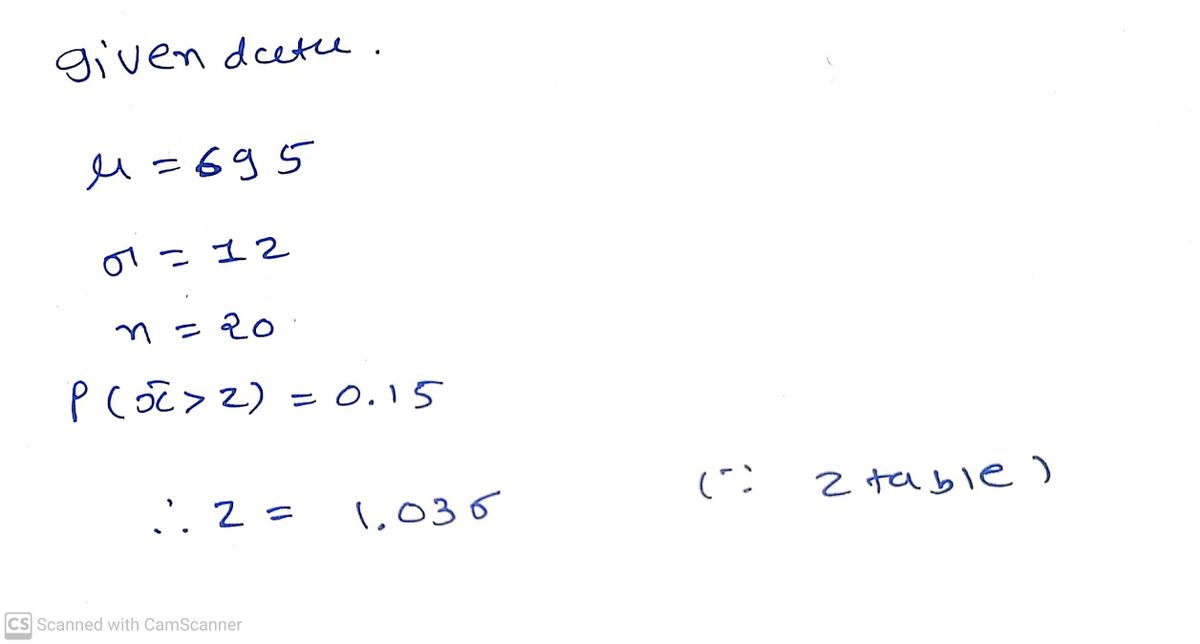 given data.
μ = 695
σ = 12
n = 20
P(x̄ > z) = 0.15
∴ z = 1.036 (∵ z table)
CS Scanned with CamScanner